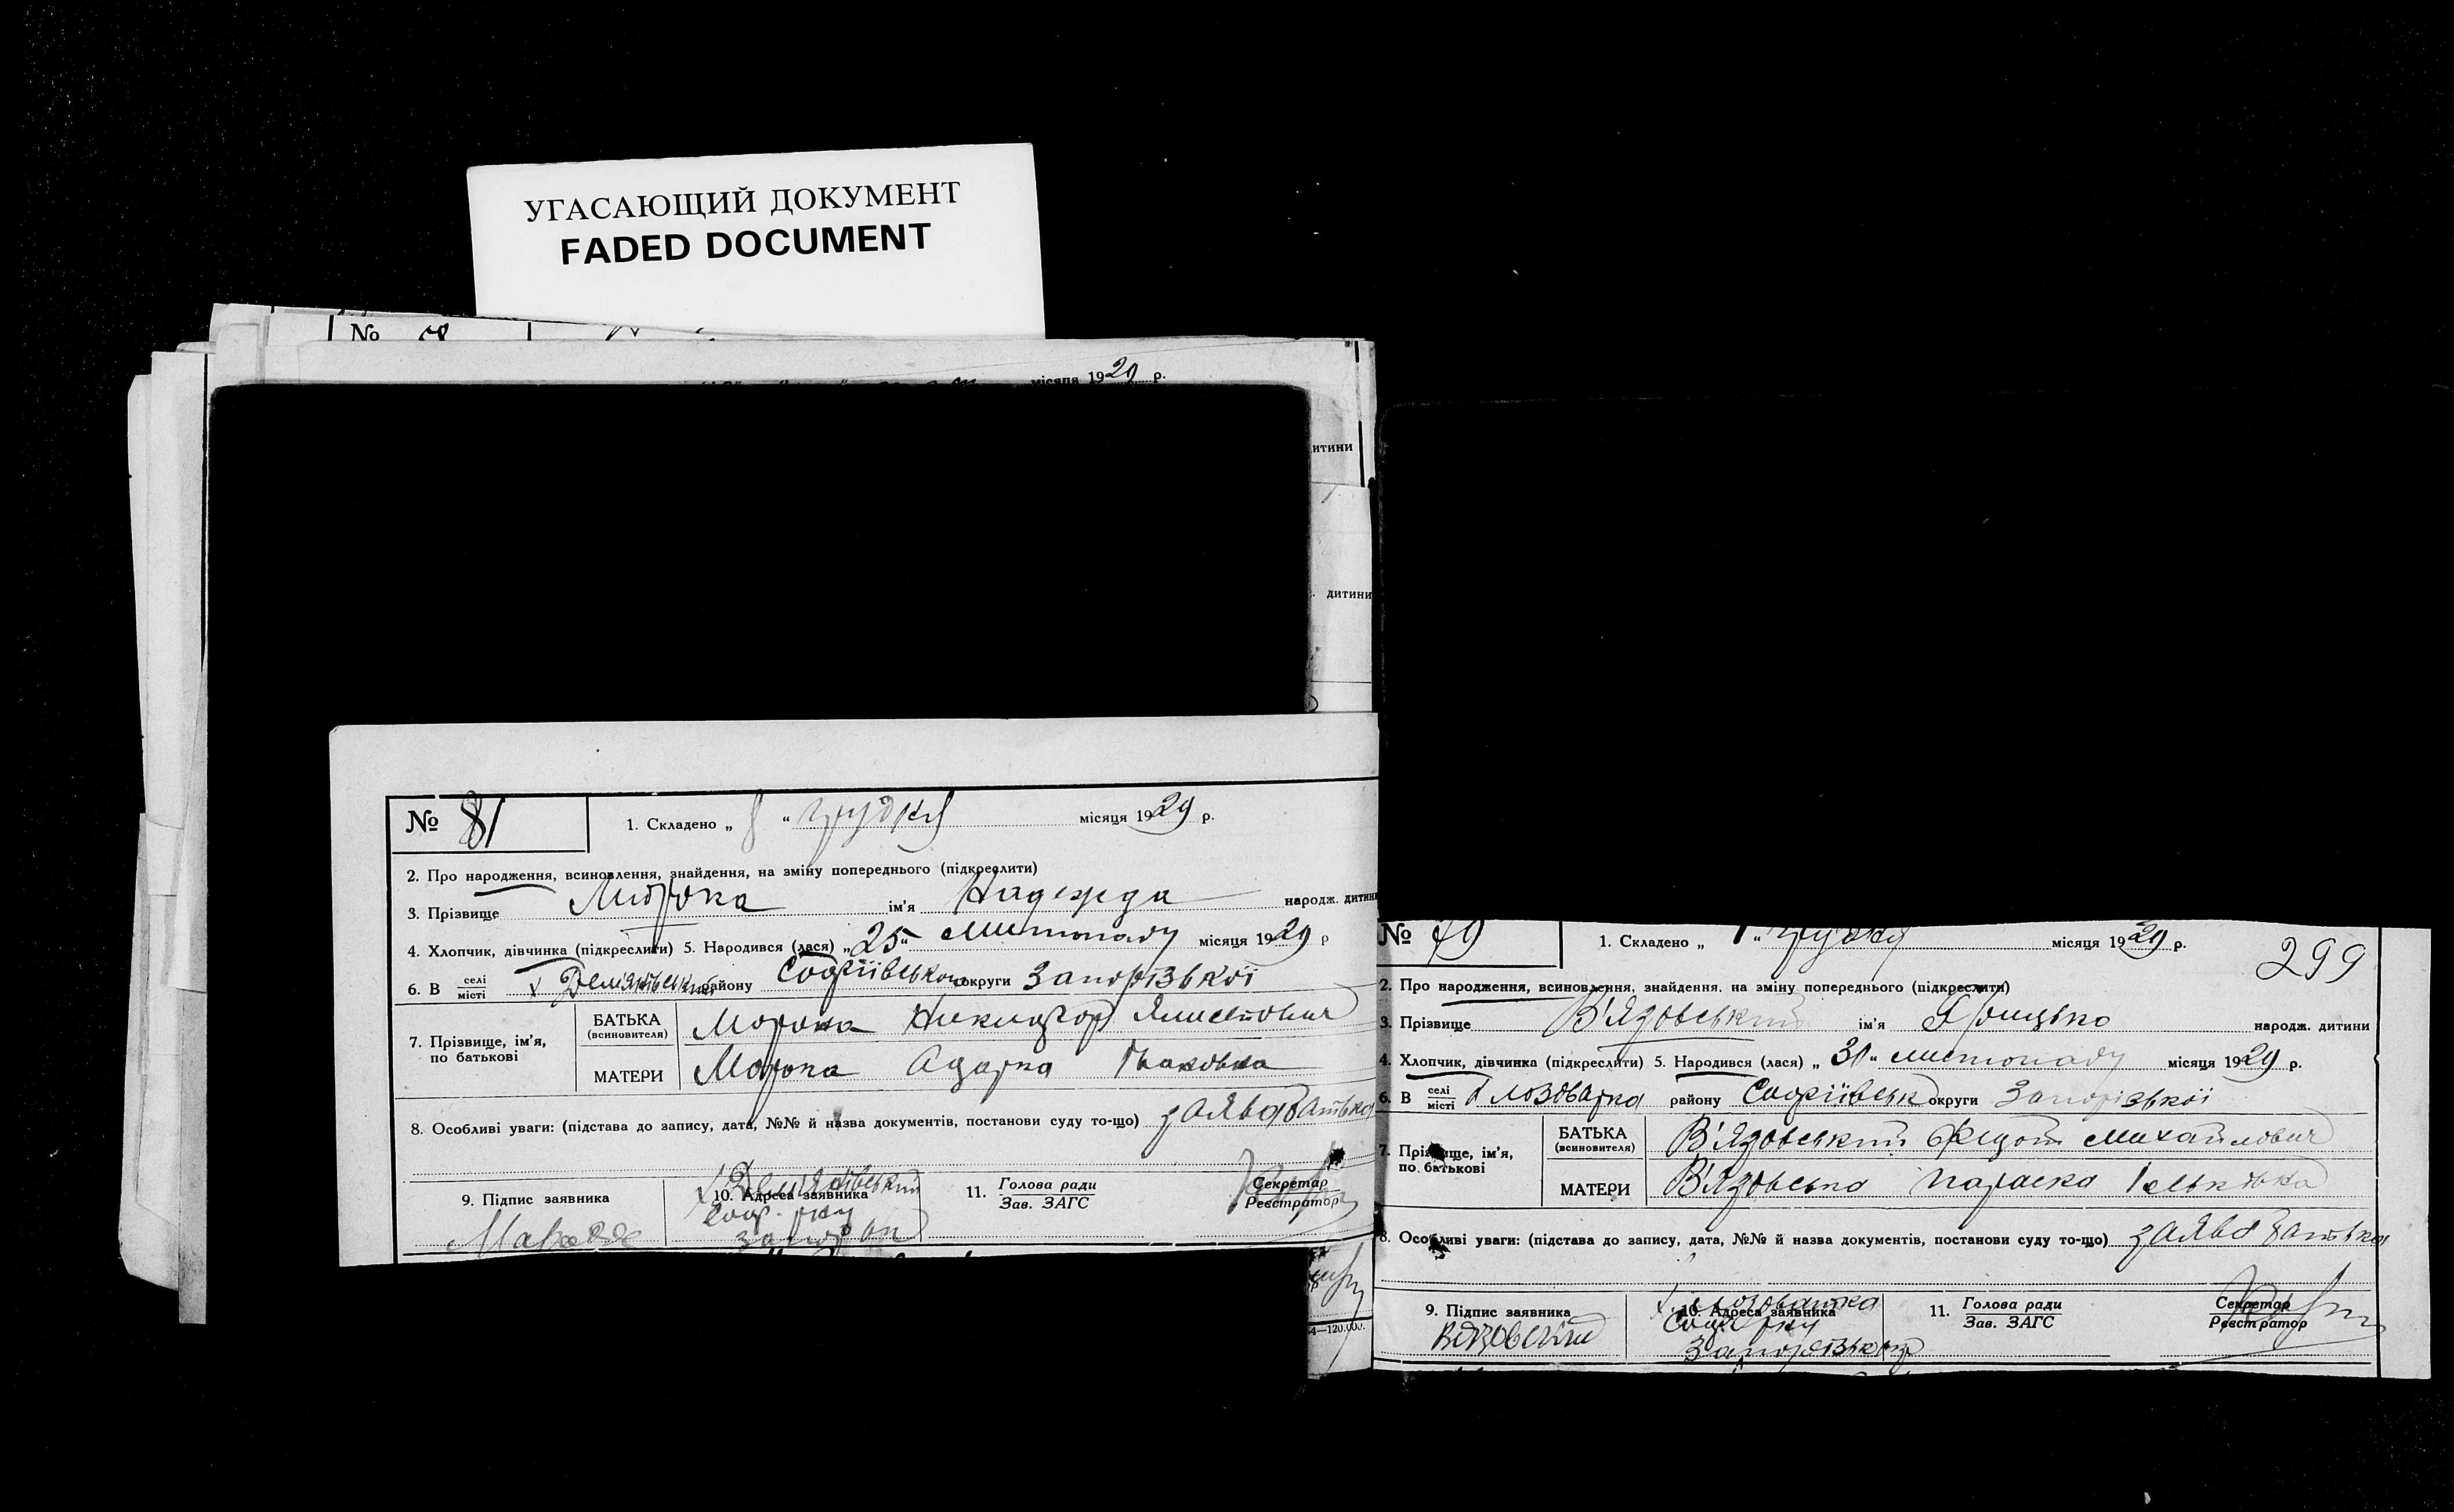 УГАСАЮЩИЙ ДОКУМЕНТ
FADED DOCUMENT
№
місяця 1929 р.
итини
дитини
№ 81
1. Складено „ 8 “ грудня місяця 1929 р.
2. Про народження, всиновлення, знайдення, на зміну попереднього (підкреслити)
3. Прізвище Морока ім'я Надежда народж. дитин
4. Хлопчик, дівчинка (підкреслити) 5. Народився (лася) „25“ листопаду місяця 1929 р
6. В селі місті х Демяківський району Софіївського округи Запорізької
7. Прізвище, ім'я, по батькові
БАТЬКА (всиновителя) Морока
МАТЕРИ Морока Одарка
8. Особливі уваги: (підстава до запису, дата, №№ й назва документів, постанови суду то-що) заява батька
9. Підпис заявника
10. Адреса заявника
Соф. р-ну
Запор ок
11. Голова ради
Зав. ЗАГС
Секретар
Реєстратор
4—120.000.
№ 79
1. Складено „ 1 “ грудня місяця 1929 р.
299
2. Про народження, всиновлення, знайдення, на зміну попереднього (підкреслити)
3. Прізвище В'язовський ім'я Грицько народж. дитини
4. Хлопчик, дівчинка (підкреслити) 5. Народився (лася) „ 30“ листопаду місяця 1929 р.
6. В селі місті х Лозоватка району Софіївськ округи Запорізької
7. Прізвище, ім'я, по батькові
БАТЬКА (всиновителя) В'язовський Федот Михайлович
МАТЕРИ В'язовська Параска
8. Особливі уваги: (підстава до запису, дата, №№ й назва документів, постанови суду то-що) заява батька
9. Підпис заявника
10. Адреса заявника
х. Лозоватка
Соф. р-ну
Запорізьк окр
11. Голова ради
Зав. ЗАГС
Секретар
Реєстратор